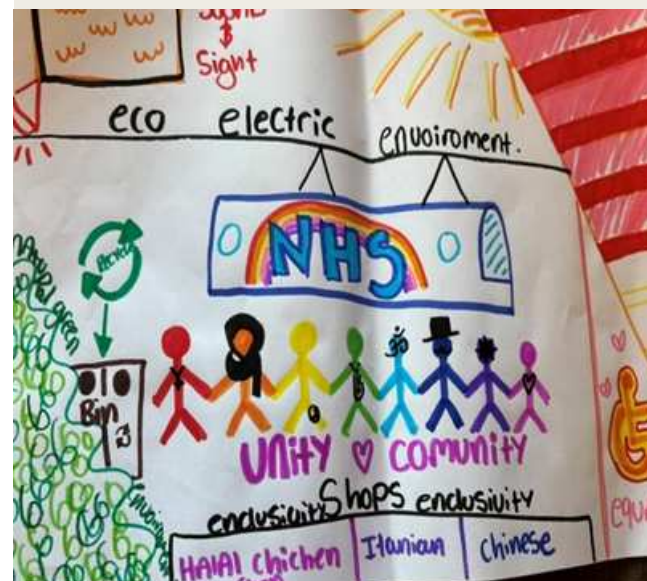 Sight
eco electric enviroment.
NHS
Recycle
natural green
Bin
UNity ♡ COMUNity
enclusicity Shops enclusivity
HAlAl Chichen
Itaniaan
Chinese